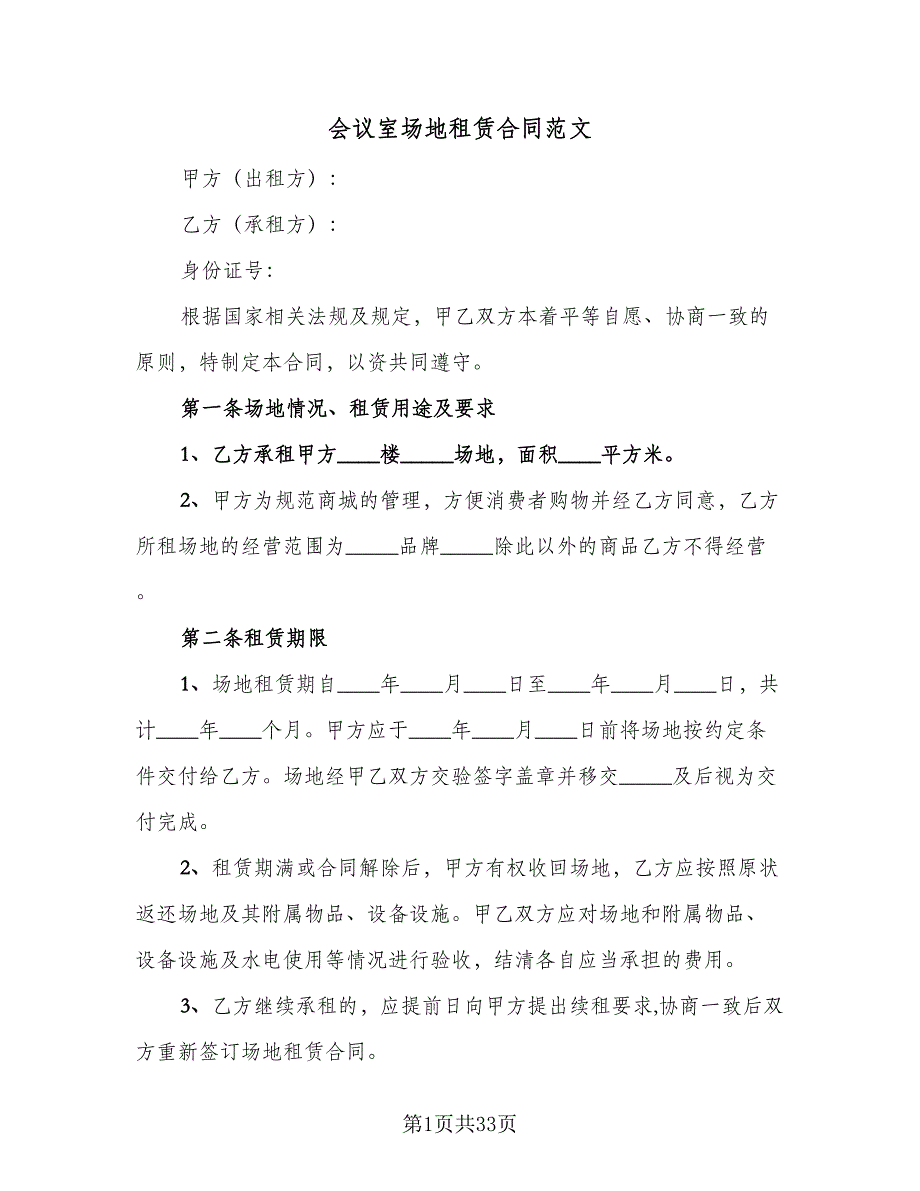 会议室场地租赁合同范文
甲方（出租方）：
乙方（承租方）：
身份证号：
根据国家相关法规及规定，甲乙双方本着平等自愿、协商一致的
原则，特制定本合同，以资共同遵守。
第一条场地情况、租赁用途及要求
1、乙方承租甲方____楼_____场地，面积____平方米。
2、甲方为规范商城的管理，方便消费者购物并经乙方同意，乙方
所租场地的经营范围为_____品牌_____除此以外的商品乙方不得经营
。
第二条租赁期限
1、场地租赁期自____年____月____日至____年____月____日，共
计____年____个月。甲方应于____年____月____日前将场地按约定条
件交付给乙方。场地经甲乙双方交验签字盖章并移交_____及后视为交
付完成。
2、租赁期满或合同解除后，甲方有权收回场地，乙方应按照原状
返还场地及其附属物品、设备设施。甲乙双方应对场地和附属物品、
设备设施及水电使用等情况进行验收，结清各自应当承担的费用。
3、乙方继续承租的，应提前日向甲方提出续租要求,协商一致后双
方重新签订场地租赁合同。
第1页共33页